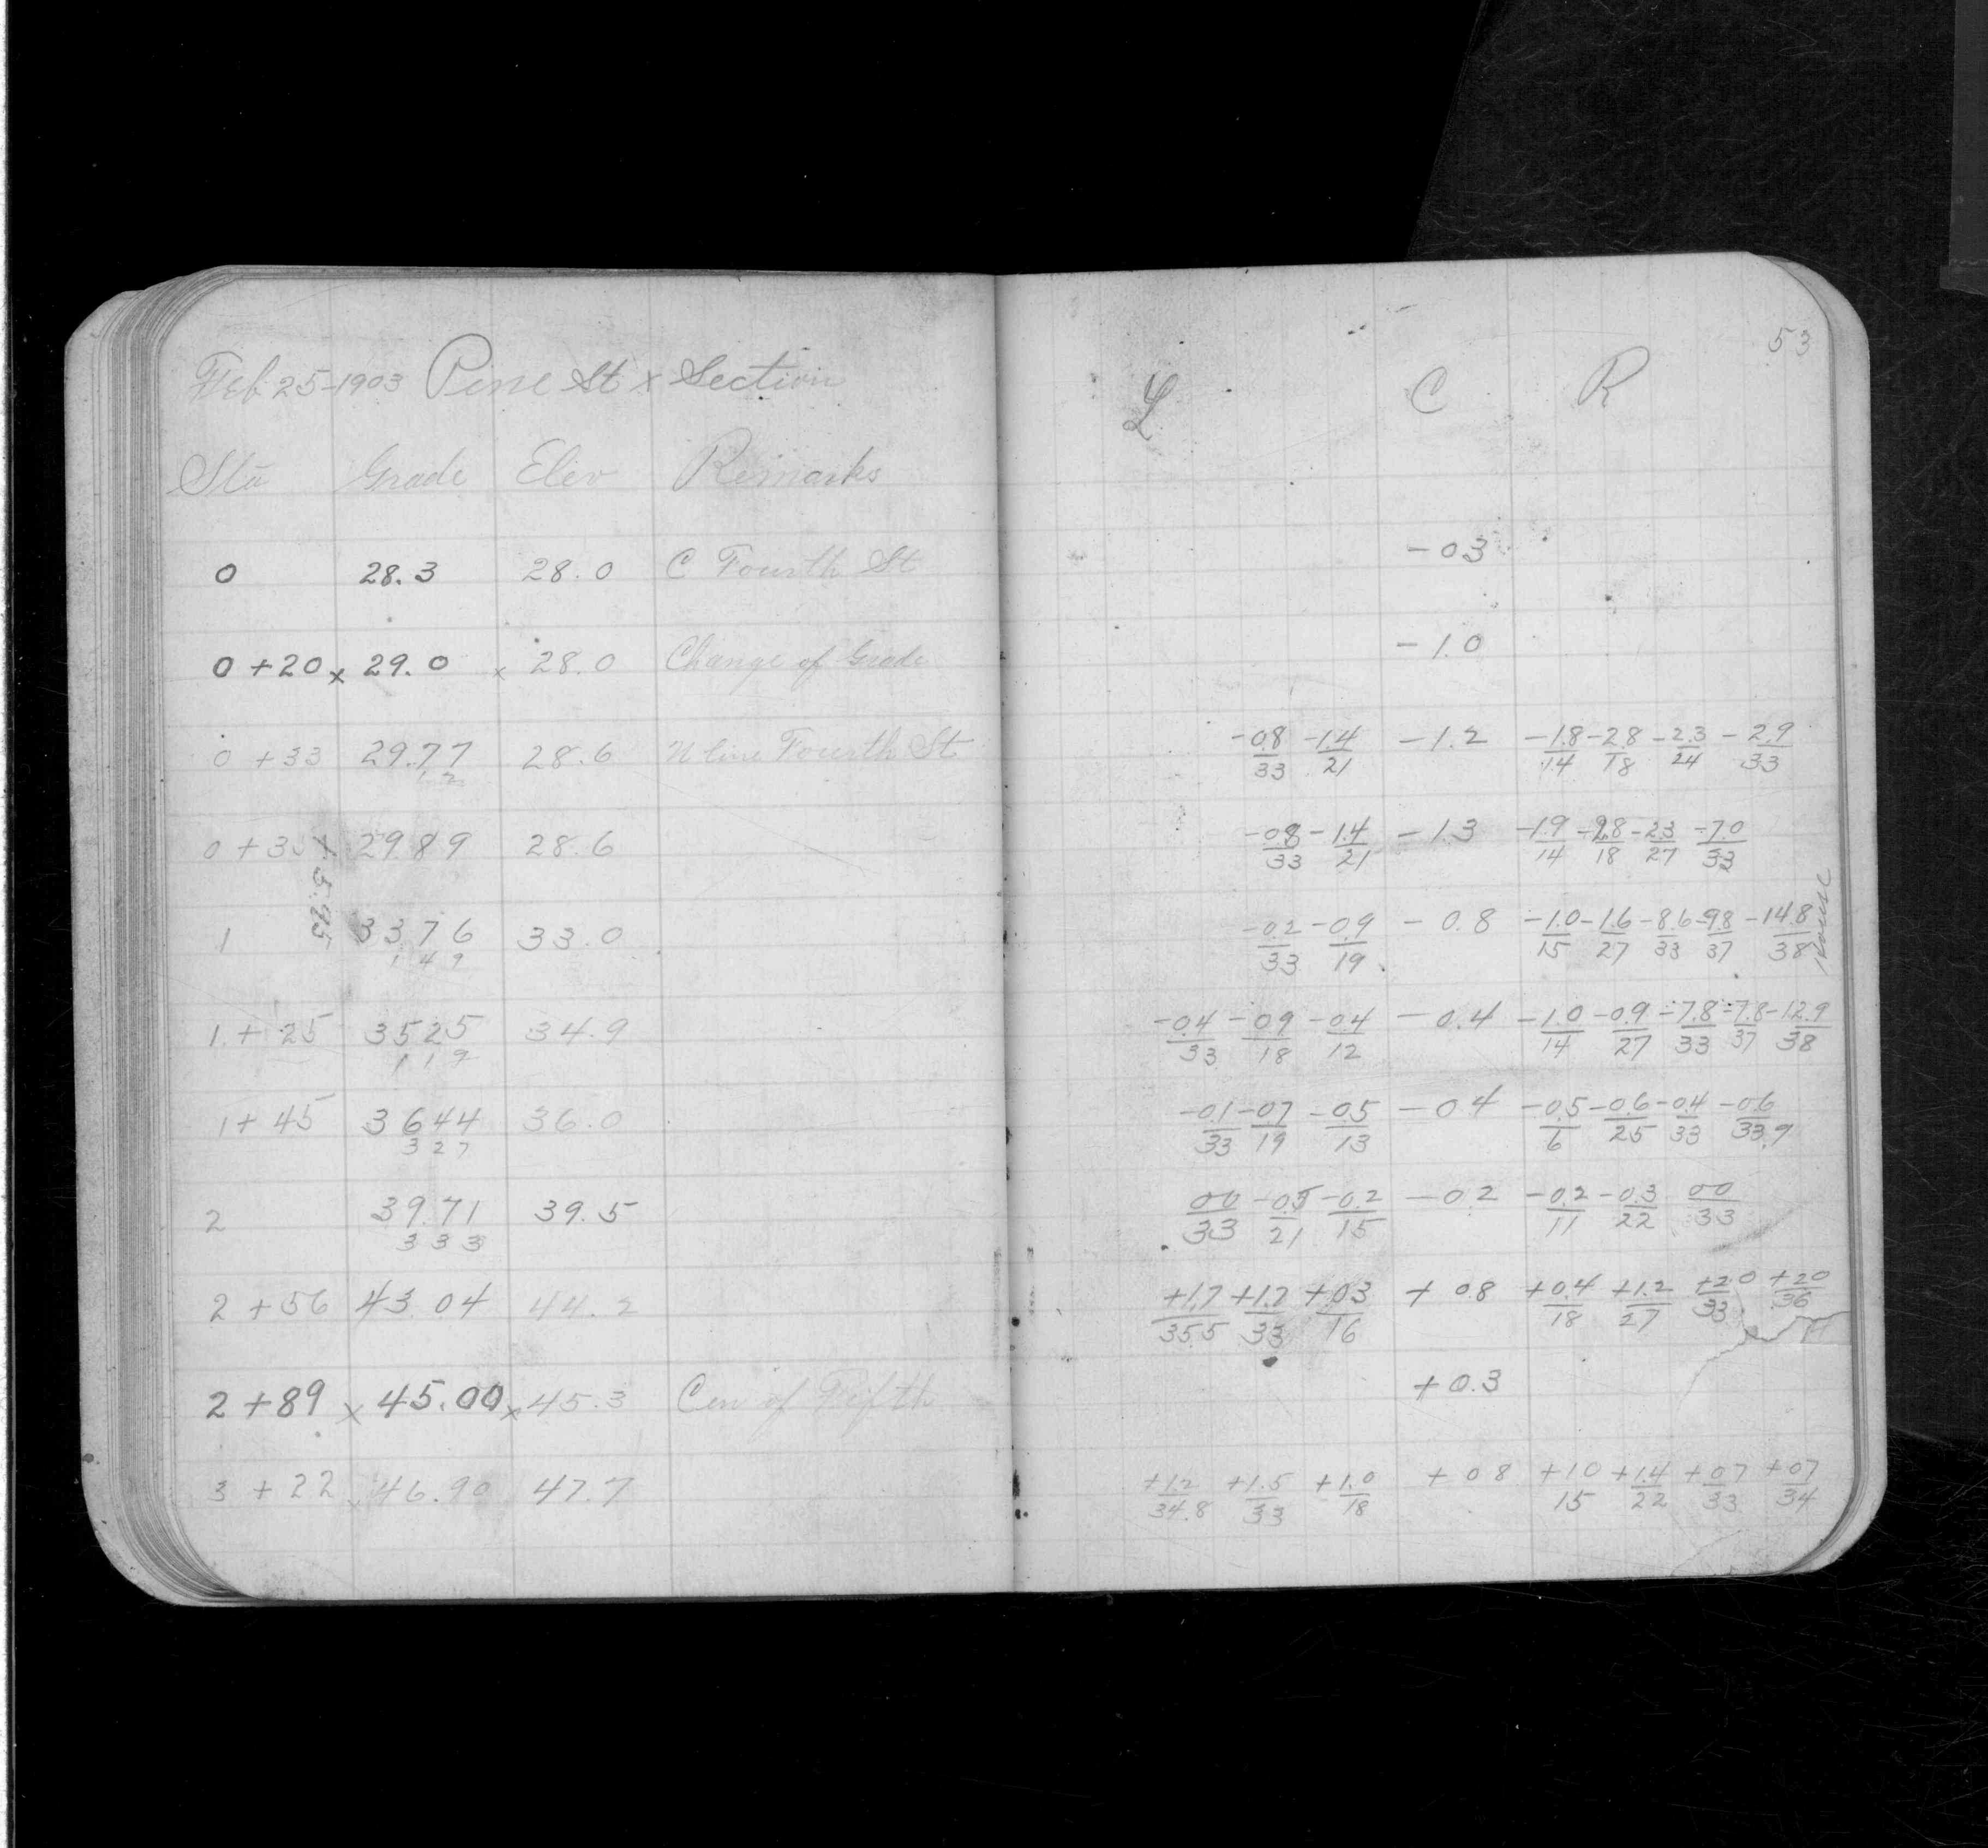 Feb 25-1903 Pine St x Section
Sta Grade Elev Remarks
0 28.3 28.0 C Fourth St
0 +20 x 29.0 x 28.0 Change of Grade
0 +33 29.77 28.6 N line Fourth St
0 +35 29 89 28.6
+5.95
1 33 76 33.0
1 4 9
1 + 25 35 25 34.9
1 1 9
1 + 45 36 44 36.0
3 2 7
2 39.71 39.5
3 3 3
2 +56 43 04 44.2
2 +89 x 45.00 x 45.3 Cen of Fifth
3 +22 46.90 47.7
53
L C R
-0 3
-1.0
-0.8/33 -1.4/21 -1.2 -1.8/14 -2.8/18 -2.3/24 -2.9/33
-0.8/33 -1.4/21 -1.3 -1.9/14 -2.8/18 -2.3/27 -7.0/33
-0.2/33 -0.9/19 -0.8 -1.0/15 -1.6/27 -8.6/33 -9.8/37 -14.8/38 House
-0.4/33 -0.9/18 -0.4/12 -0.4 -1.0/14 -0.9/27 -7.8/33 -7.8/37 -12.9/38
-0.1/33 -0.7/19 -0.5/13 -0.4 -0.5/6 -0.6/25 -0.4/33 -0.6/33.9
00/33 -0.5/21 -0.2/15 -0 2 -0.2/11 -0.3/22 00/33
+1.7/35.5 +1.7/33 +0.3/16 +0.8 +0.4/18 +1.2/27 +2.0/33 +2.0/36
+0.3
+1.2/34.8 +1.5/33 +1.0/18 +0 8 +1.0/15 +1.4/22 +0.7/33 +0.7/34